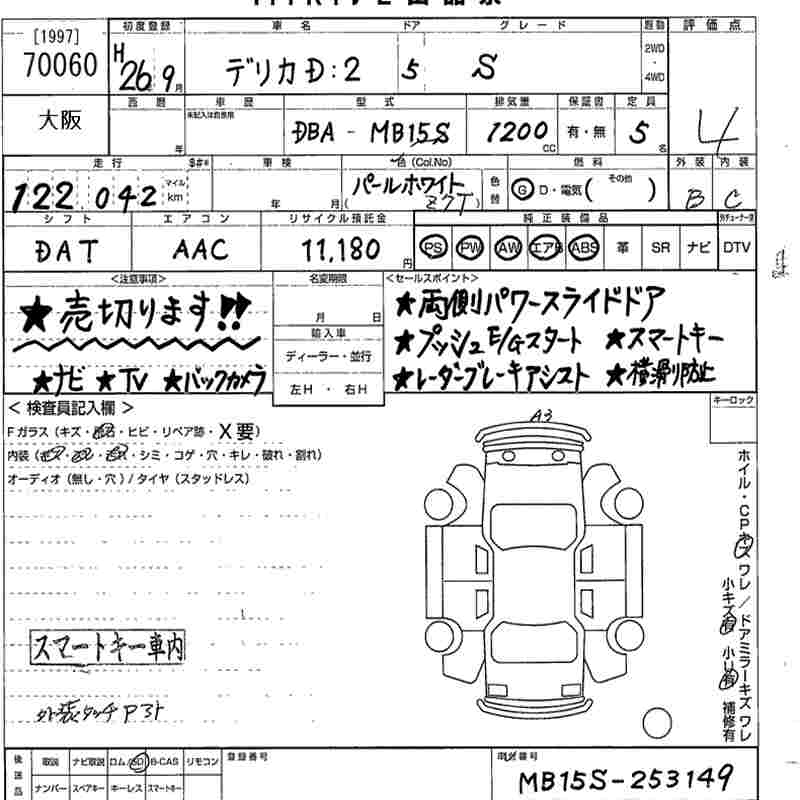 [1997]
70060
大阪
初度登録 車名 ドア グレード 駆動 評価点
H 26年 9月 デリカD:2 5 S 2WD・4WD
4
西暦 車歴 型式 排気量 保証書 定員
年 未記入は自家用 DBA-MB15S 1200cc 有・無 5名
走行 $#* 車検 色(Col.No) 色替 燃料 外装 内装
122,042 マイル km 年 月 パールホワイト (Z7T) G D・電気(その他) B C
シフト エアコン リサイクル預託金 純正装備品 外チューナー付
DAT AAC 11,180円 PS PW AW エアB ABS 革 SR ナビ DTV
<注意事項> 名変期限 <セールスポイント>
★売切ります!!
★ナビ ★TV ★バックカメラ
月 日
輸入車
ディーラー・並行
左H・右H
★両側パワースライドドア
★プッシュE/Gスタート ★スマートキー
★レーダーブレーキアシスト ★横滑り防止
キーロック
<検査員記入欄>
Fガラス(キズ・・ヒビ・リペア跡・X要)
内装(・シミ・コゲ・穴・キレ・破れ・割れ)
オーディオ(無し・穴)/タイヤ(スタッドレス)
A3
ホイル・CPキズワレ/ドアミラーキズワレ
小キズ有 小U有 補修有
スマートキー車内
外装タッチP3ト
後送品 取説 ナビ取説 ロム/SD B-CAS リモコン
ナンバー スペアキー キーレス スマートキー
登録番号
車台番号
MB15S-253149